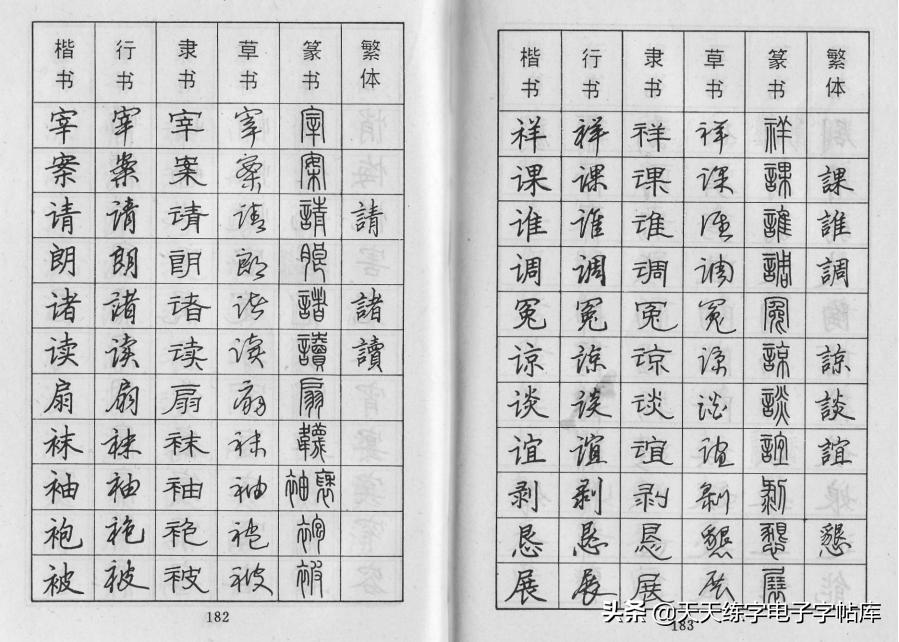 楷书 行书 隶书 草书 篆书 繁体
宰 宰 宰 宰 宰
案 案 案 案 案
请 请 请 请 請 請
朗 朗 朗 朗 朗
诸 诸 诸 诸 諸 諸
读 读 读 读 讀 讀
扇 扇 扇 扇 扇
袜 袜 袜 袜 韤
袖 袖 袖 袖 袖褎
袍 袍 袍 袍 袍
被 被 被 被 被
182
楷书 行书 隶书 草书 篆书 繁体
祥 祥 祥 祥 祥
课 课 课 课 課 課
谁 谁 谁 谁 誰 誰
调 调 调 调 調 調
冤 冤 冤 冤 冤
谅 谅 谅 谅 諒 諒
谈 谈 谈 谈 談 談
谊 谊 谊 谊 誼 誼
剥 剥 剥 剥 剥
恳 恳 恳 懇 懇 懇
展 展 展 展 展
183
头条 @天天练字电子字帖库